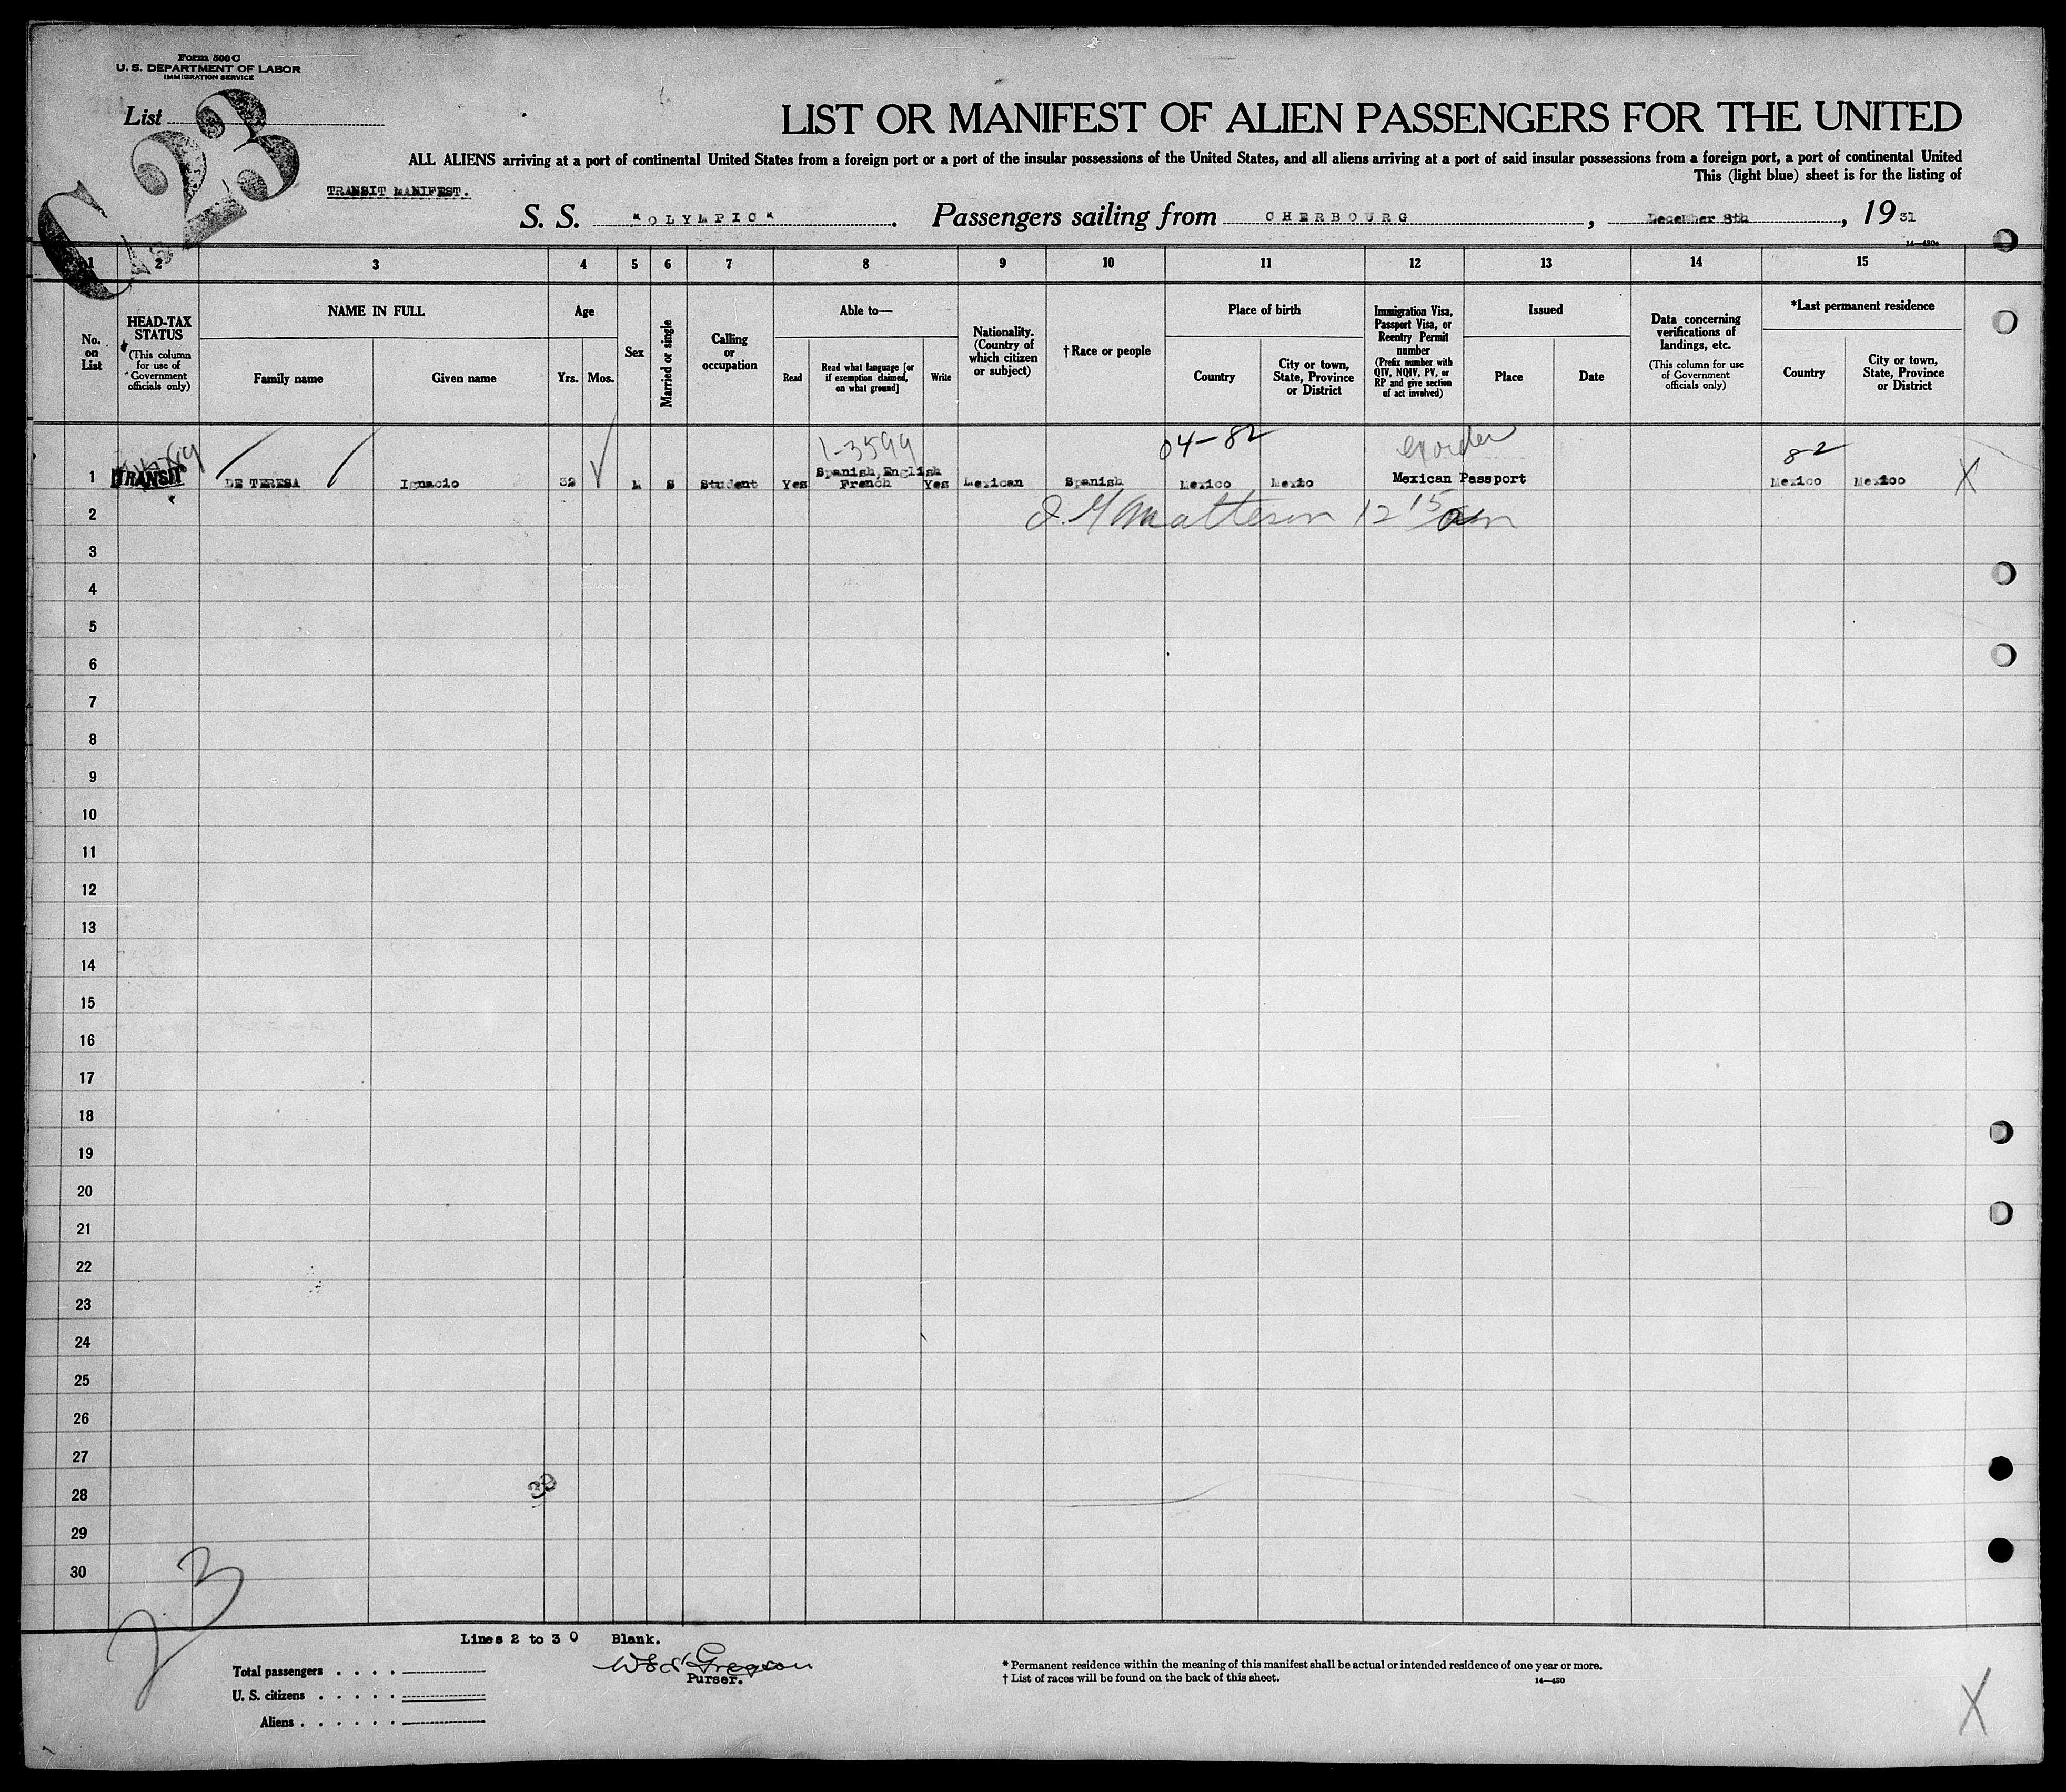 Form 500 C
U. S. DEPARTMENT OF LABOR
IMMIGRATION SERVICE
List
C 23
LIST OR MANIFEST OF ALIEN PASSENGERS FOR THE UNITED
ALL ALIENS arriving at a port of continental United States from a foreign port or a port of the insular possessions of the United States, and all aliens arriving at a port of said insular possessions from a foreign port, a port of continental United
This (light blue) sheet is for the listing of
TRANSIT MANIFEST.
S. S. "OLYMPIC". Passengers sailing from CHERBOURG, December 8th, 1931
1 2 3 4 5 6 7 8 9 10 11 12 13 14 15
No. on List
HEAD-TAX STATUS
(This column for use of Government officials only)
NAME IN FULL
Family name
Given name
Age
Yrs.
Mos.
Sex
Married or single
Calling or occupation
Able to—
Read
Read what language [or if exemption claimed, on what ground]
Write
Nationality. (Country of which citizen or subject)
†Race or people
Place of birth
Country
City or town, State, Province or District
Immigration Visa, Passport Visa, or Reentry Permit number
(Prefix number with QIV, NQIV, PV, or RP and give section of act involved)
Issued
Place
Date
Data concerning verifications of landings, etc.
(This column for use of Government officials only)
*Last permanent residence
Country
City or town, State, Province or District
1-3599 04-82 82
1 TRANSIT DE TERESA Ignacio 32 M S Student Yes Spanish, English French Yes Mexican Spanish Mexico Mexico Mexican Passport Mexico Mexico X
2 Matteson 12 15
3
4
5
6
7
8
9
10
11
12
13
14
15
16
17
18
19
20
21
22
23
24
25
26
27
28
29
30
23
Lines 2 to 30 Blank.
Purser.
Total passengers
U. S. citizens
Aliens
* Permanent residence within the meaning of this manifest shall be actual or intended residence of one year or more.
† List of races will be found on the back of this sheet.
14—430
X